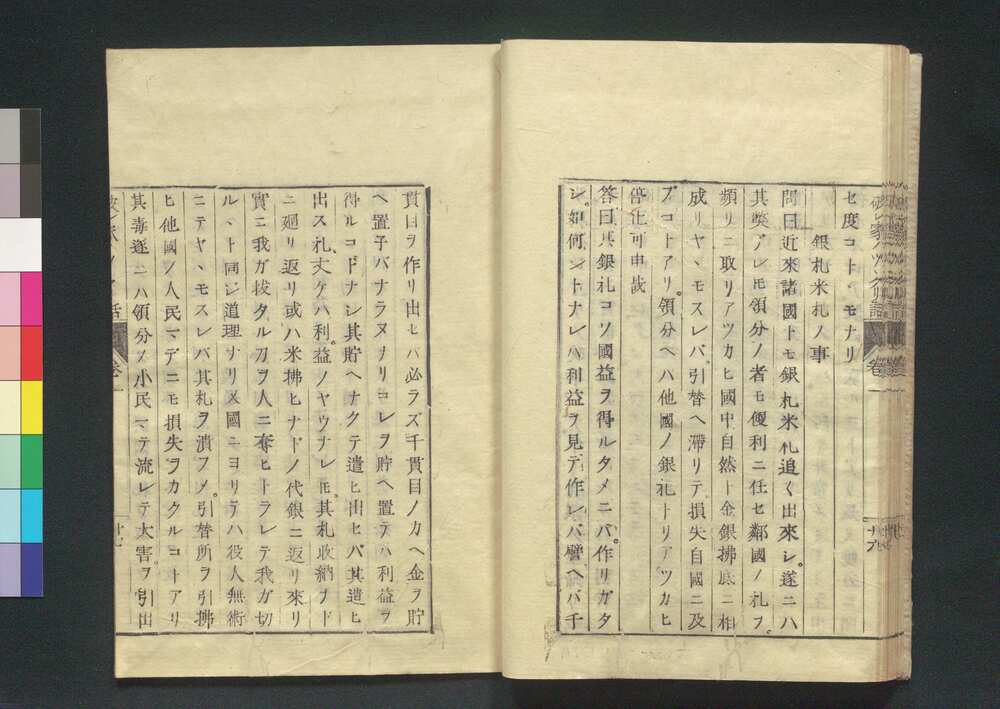 セ度コトヽモナリ
銀札米札ノ事
問曰近來諸國トモ銀札米札追〻出來シ。遂ニハ
其獘アレモ領分ノ者モ便利ニ任セ鄰國ノ札ヲ
頻リニ取リアツカヒ國中自然ト金銀拂底ニ相
成リヤヽモスレバ引替ヘ滯リテ損失自國ニ及
ブコトアリ。領分ヘハ他國ノ銀札トリアツカヒ
停止可申哉
答曰其銀札コソ國益ヲ得ルタメニバ。作リガタ
シ。如何ントナレハ利益ヲ見テ作レバ譬ヘバ千
貫目ヲ作リ出セバ必ラズ千貫目ノカヘ金ヲ貯
ヘ置子バナラヌナリコレヲ貯ヘ置テハ利益ヲ
得ルコナシ其貯ヘナクテ遣ヒ出セバ其遣ヒ
出ス札、丈ケハ利益ノヤウナレモ。其札收納ナド
ニ廻リ返リ或ハ米拂ヒナドノ代銀ニ返リ來リ
實ニ我ガ拔タル刀ヲ人ニ奪ヒトラレテ我ガ切
ルヽト同ジ道理ナリ又國ニヨリテハ役人無術
ニテヤヽモスレバ其札ヲ潰フメ。引替所ヲ引拂
ヒ他國ノ人民マデニモ損失ヲカクルコトアリ
其毒逐ニハ領分ノ小民マテ流レテ大害ヲ引出